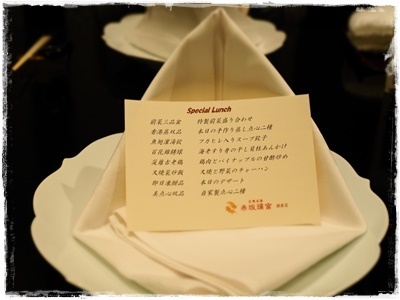 Special Lunch
前菜三品盆 特製前菜盛り合わせ
香港蒸双品 本日の手作り蒸し点心二種
魚翅灌湯餃 フカヒレ入りスープ餃子
百花 球 海老すり身の干し貝柱あんかけ
菠蘿古老鶏 鶏肉とパイナップルの甘酢炒め
叉焼菜炒飯 叉焼と野菜のチャーハン
即日凍甜品 本日のデザート
美点心双品 自家製点心二種
赤坂璃宮 銀座店